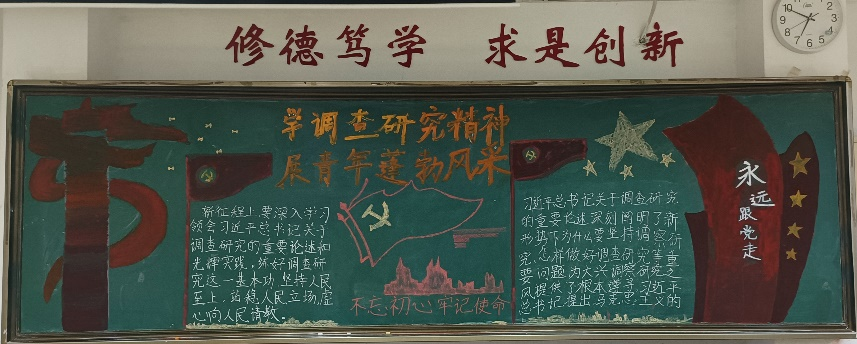 修德笃学 求是创新
学调查研究精神
展青年蓬勃风采
新征程上要深入学习
领会习近平总书记关于
调查研究的重要论述和
先辉实践，练好调查研
究这一基本功，坚持人民
至上，站稳人民立场，虚
心向人民请教。
不忘初心牢记使命
习近平总书记关于调查研究
的重要论述深刻阐明了新
形势下为什么要坚持调
究、怎样做好调查研究等重
要问题，为大兴调察研究之
风提供了根本遵寻。习近平
总书记提出马克思主义的
永远跟党走